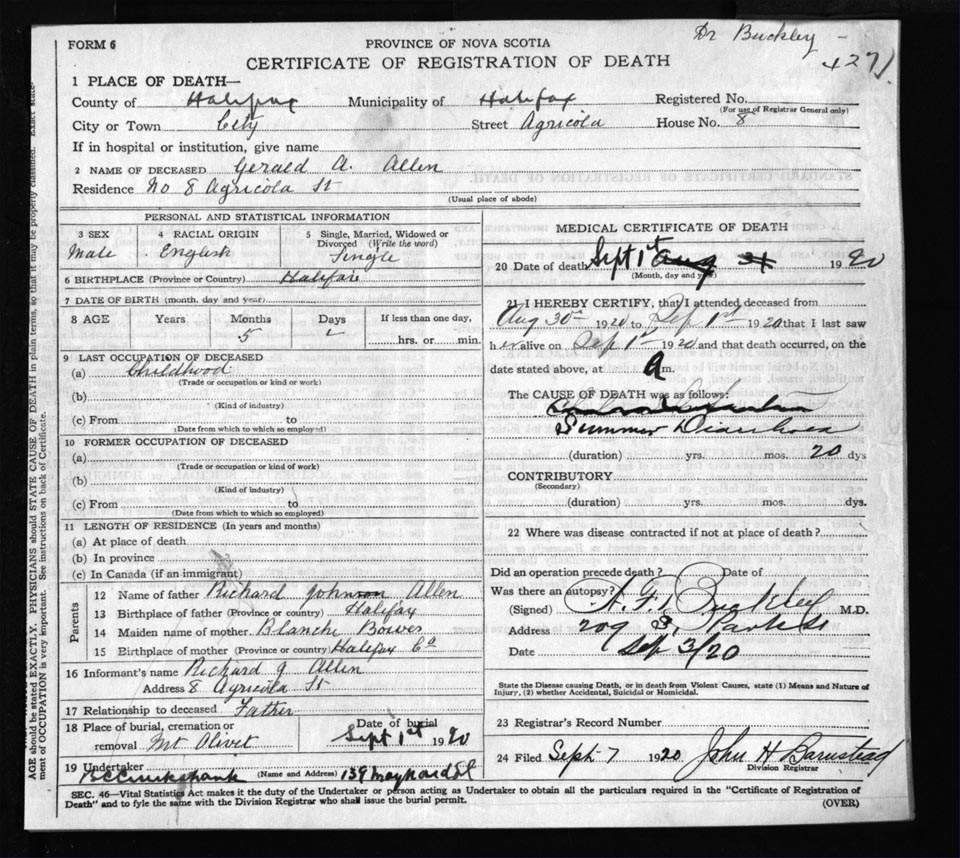 Dr Buckley -
4271
FORM 6
PROVINCE OF NOVA SCOTIA
CERTIFICATE OF REGISTRATION OF DEATH
1 PLACE OF DEATH—
County of Halifax Municipality of Halifax Registered No.
(For use of Registrar General only)
City or Town City Street Agricola House No. 8
If in hospital or institution, give name
2 NAME OF DECEASED Gerald A. Allen
Residence No 8 Agricola St
(Usual place of abode)
PERSONAL AND STATISTICAL INFORMATION
3 SEX 4 RACIAL ORIGIN 5 Single, Married, Widowed or Divorced (Write the word)
Male English Single
6 BIRTHPLACE (Province or Country) Halifax
7 DATE OF BIRTH (month, day and year)
8 AGE Years Months Days If less than one day,
5 hrs. or min.
9 LAST OCCUPATION OF DECEASED
(a) Childhood
(Trade or occupation or kind or work)
(b)
(Kind of industry)
(c) From to
(Date from which to which so employed)
10 FORMER OCCUPATION OF DECEASED
(a)
(Trade or occupation or kind of work)
(b)
(Kind of industry)
(c) From to
(Date from which to which so employed)
11 LENGTH OF RESIDENCE (In years and months)
(a) At place of death
(b) In province
(c) In Canada (if an immigrant)
Parents
12 Name of father Richard John Allen
13 Birthplace of father (Province or country) Halifax
14 Maiden name of mother Blanche Bower
15 Birthplace of mother (Province or country) Halifax Co
16 Informant's name Richard J Allen
Address 8 Agricola St
17 Relationship to deceased Father
18 Place of burial, cremation or removal Mt Olivet Date of burial Sept 1st 1920
19 Undertaker (Name and Address) 139 Maynard St
MEDICAL CERTIFICATE OF DEATH
20 Date of death Sept 1st Aug 1920
(Month, day and year)
21 I HEREBY CERTIFY, that I attended deceased from
Aug 30th 1920 to Sep 1st 1920 that I last saw
h im alive on Sep 1st 1920 and that death occurred, on the
date stated above, at a m.
The CAUSE OF DEATH was as follows:
Summer Diarrhoea
(duration) yrs. mos. 20 dys
CONTRIBUTORY
(Secondary)
(duration) yrs. mos. dys.
22 Where was disease contracted if not at place of death?
Did an operation precede death? Date of
Was there an autopsy?
(Signed) A. G. Buckley M.D.
Address 209 S. Park St
Date Sep 3/20
State the Disease causing Death, or in death from Violent Causes, state (1) Means and Nature of
Injury, (2) whether Accidental, Suicidal or Homicidal.
23 Registrar's Record Number
24 Filed Sept 7 1920 John H Barnstead
Division Registrar
SEC. 46—Vital Statistics Act makes it the duty of the Undertaker or person acting as Undertaker to obtain all the particulars required in the "Certificate of Registration of
Death" and to fyle the same with the Division Registrar who shall issue the burial permit.
(OVER)
AGE should be stated EXACTLY. PHYSICIANS should STATE CAUSE OF DEATH in plain terms, so that it may be property classified. Exact state-
ment of OCCUPATION is very important. See instructions on back of Certificate.